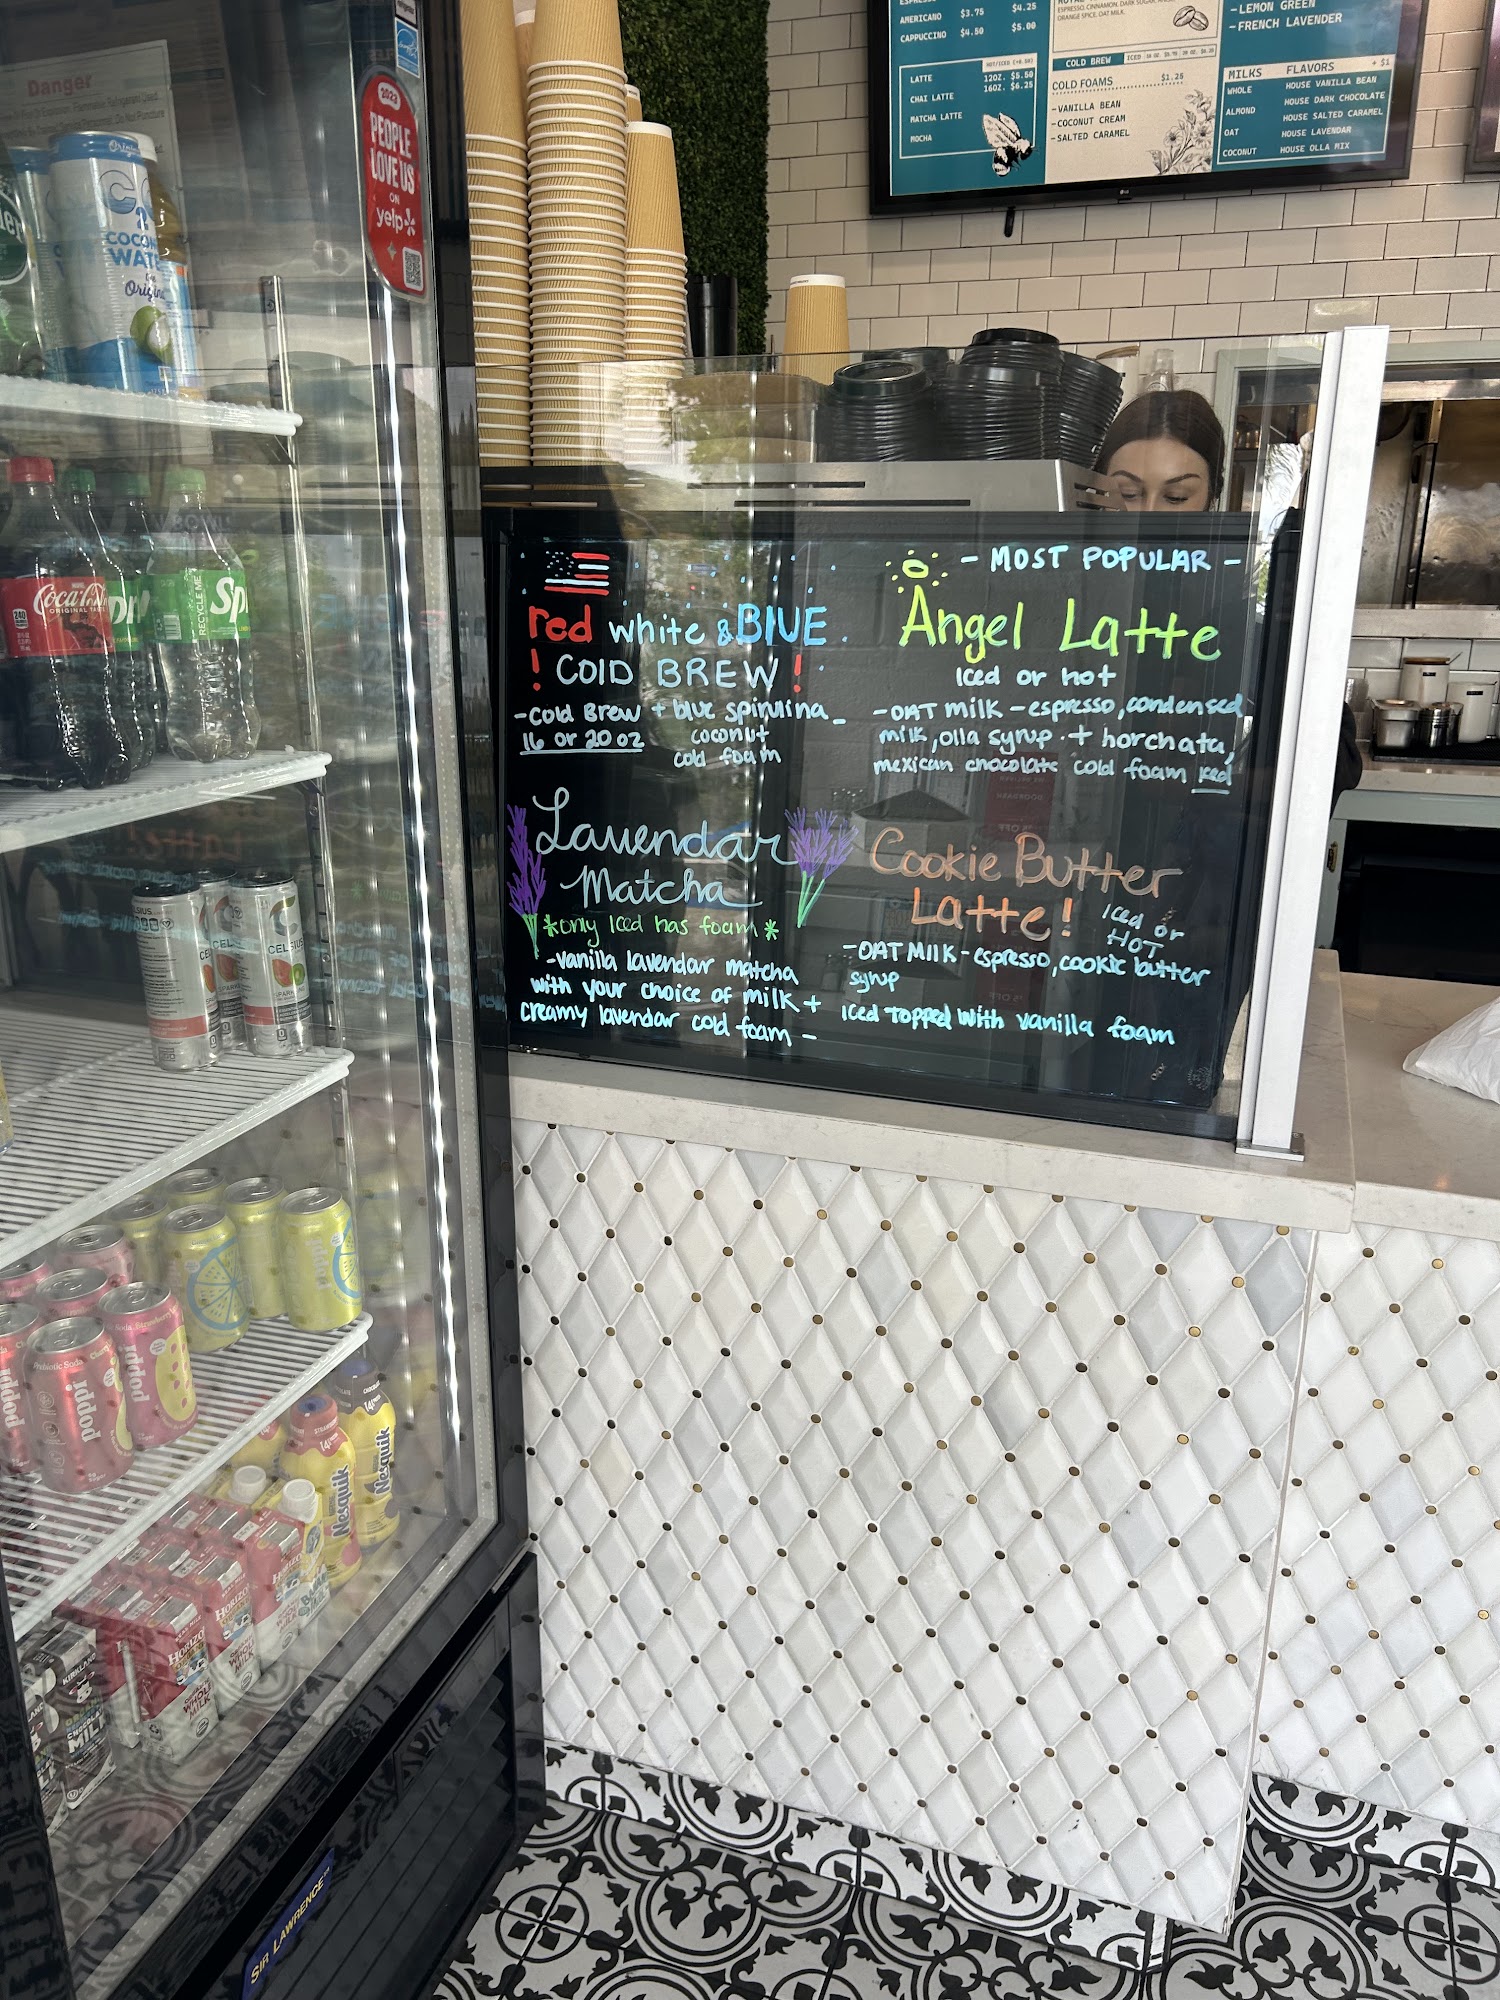 AMERICANO $3.75 $4.25
CAPPUCCINO $4.50 $5.00
HOT/ICED (+0.50)
LATTE 12OZ. $5.50
16OZ. $6.25
CHAI LATTE
MATCHA LATTE
MOCHA
ESPRESSO, CINNAMON, DARK SUGAR,
ORANGE SPICE, OAT MILK.
COLD BREW ICED
COLD FOAMS $1.25
-VANILLA BEAN
-COCONUT CREAM
-SALTED CARAMEL
-LEMON GREEN
-FRENCH LAVENDER
MILKS FLAVORS + $1
WHOLE HOUSE VANILLA BEAN
HOUSE DARK CHOCOLATE
ALMOND HOUSE SALTED CARAMEL
OAT HOUSE LAVENDAR
COCONUT HOUSE OLLA MIX
LG
Danger
2023
PEOPLE
LOVE US
ON
yelp
red white & BlUE
! COlD BREW !
-Cold Brew + blue spirulina -
16 or 20 oz coconut
cold foam
- MOST POPULAR -
Angel Latte
Iced or hot
-OAT milk - espresso, condensed
milk, olla syrup + horchata,
mexican chocolate cold foam
Lavendar
Matcha
*only Iced has foam*
-vanilla lavendar matcha
with your choice of milk +
creamy lavendar cold foam -
Cookie Butter
Latte!
Iced or
HOT
-OAT MIlk - espresso, cookie butter
syrup
Iced topped with vanilla foam
Original
COCONUT
WATER
Original
Coca-Cola
ORIGINAL TASTE
240
RECYCLE ME
Sp
CELSIUS
CELSIUS
poppi
poppi
poppi
poppi
Prebiotic Soda
Nesquik
Nesquik
14
HORIZON
HORIZON
WHOLE
MILK
KIRKLAND
CHOCOLATE
MILK
SIR LAWRENCE